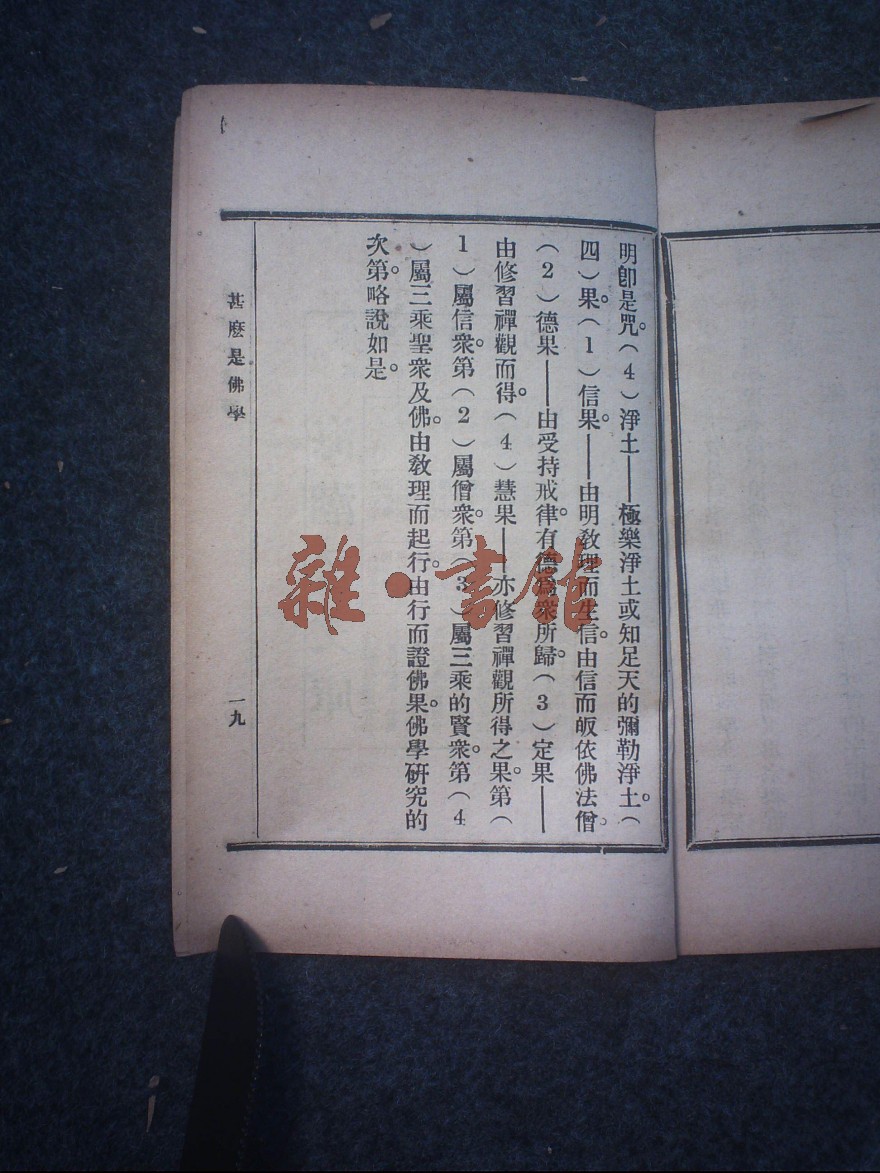 明卽是咒。(4)淨土——極樂淨土或知足天的彌勒淨土。(
四)果。(1)信果。——由明敎理而生信。由信而皈依佛法僧。
(2)德果——由受持戒律。有德爲衆所歸。(3)定果——
由修習禪觀而得。(4)慧果——亦修習禪觀所得之果。第(
1)屬信衆。第(2)屬僧衆。第(3)屬三乘的賢衆。第(4
)屬三乘聖衆及佛。由敎理而起行。由行而證佛果。佛學硏究的
次第。略說如是。
甚麽是佛學
一九
雜·書館